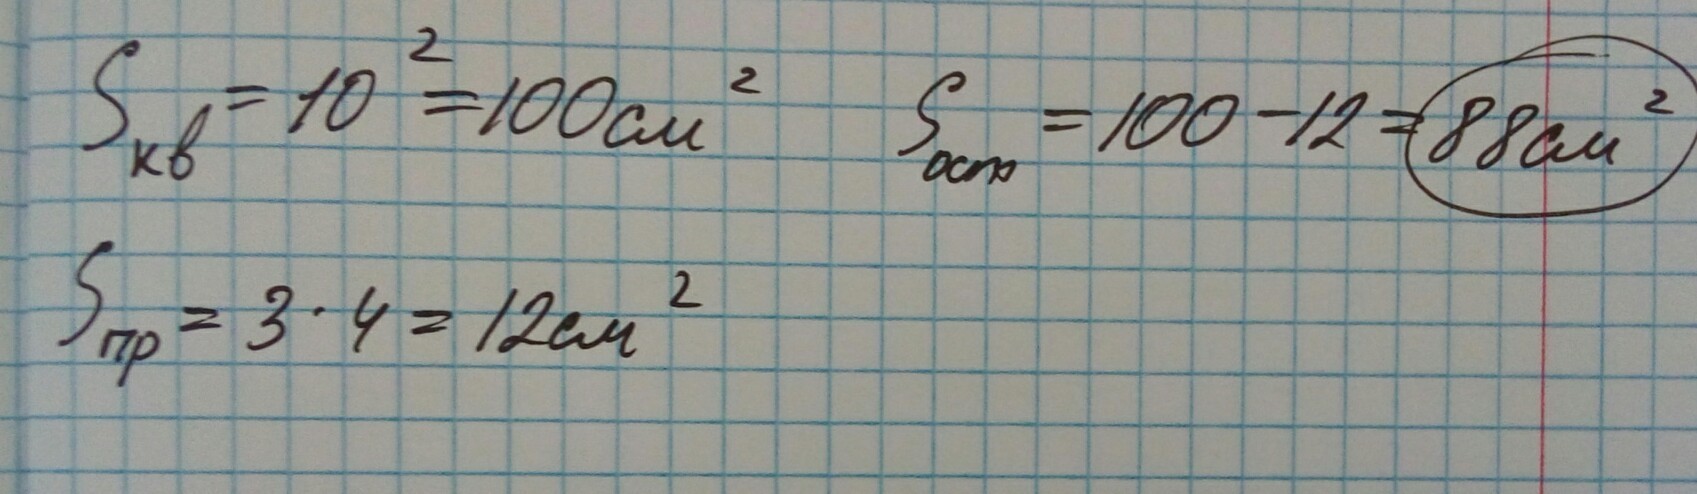 Sкв = 10² = 100см²
Sост = 100 - 12 = 88см²
Sпр = 3 · 4 = 12см²